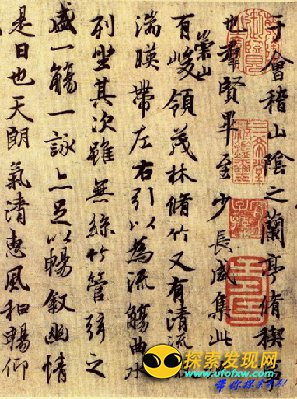 于會稽山陰之蘭亭脩禊
也群賢畢至少長咸集此
崇山
有峻領茂林脩竹又有清流
湍暎帶左右引以為流觴曲水
列坐其次雖無絲竹管弦之
盛一觴一詠亦足以暢敘幽情
是日也天朗氣清惠風和暢仰
探索发现网
www.ufotxw.com